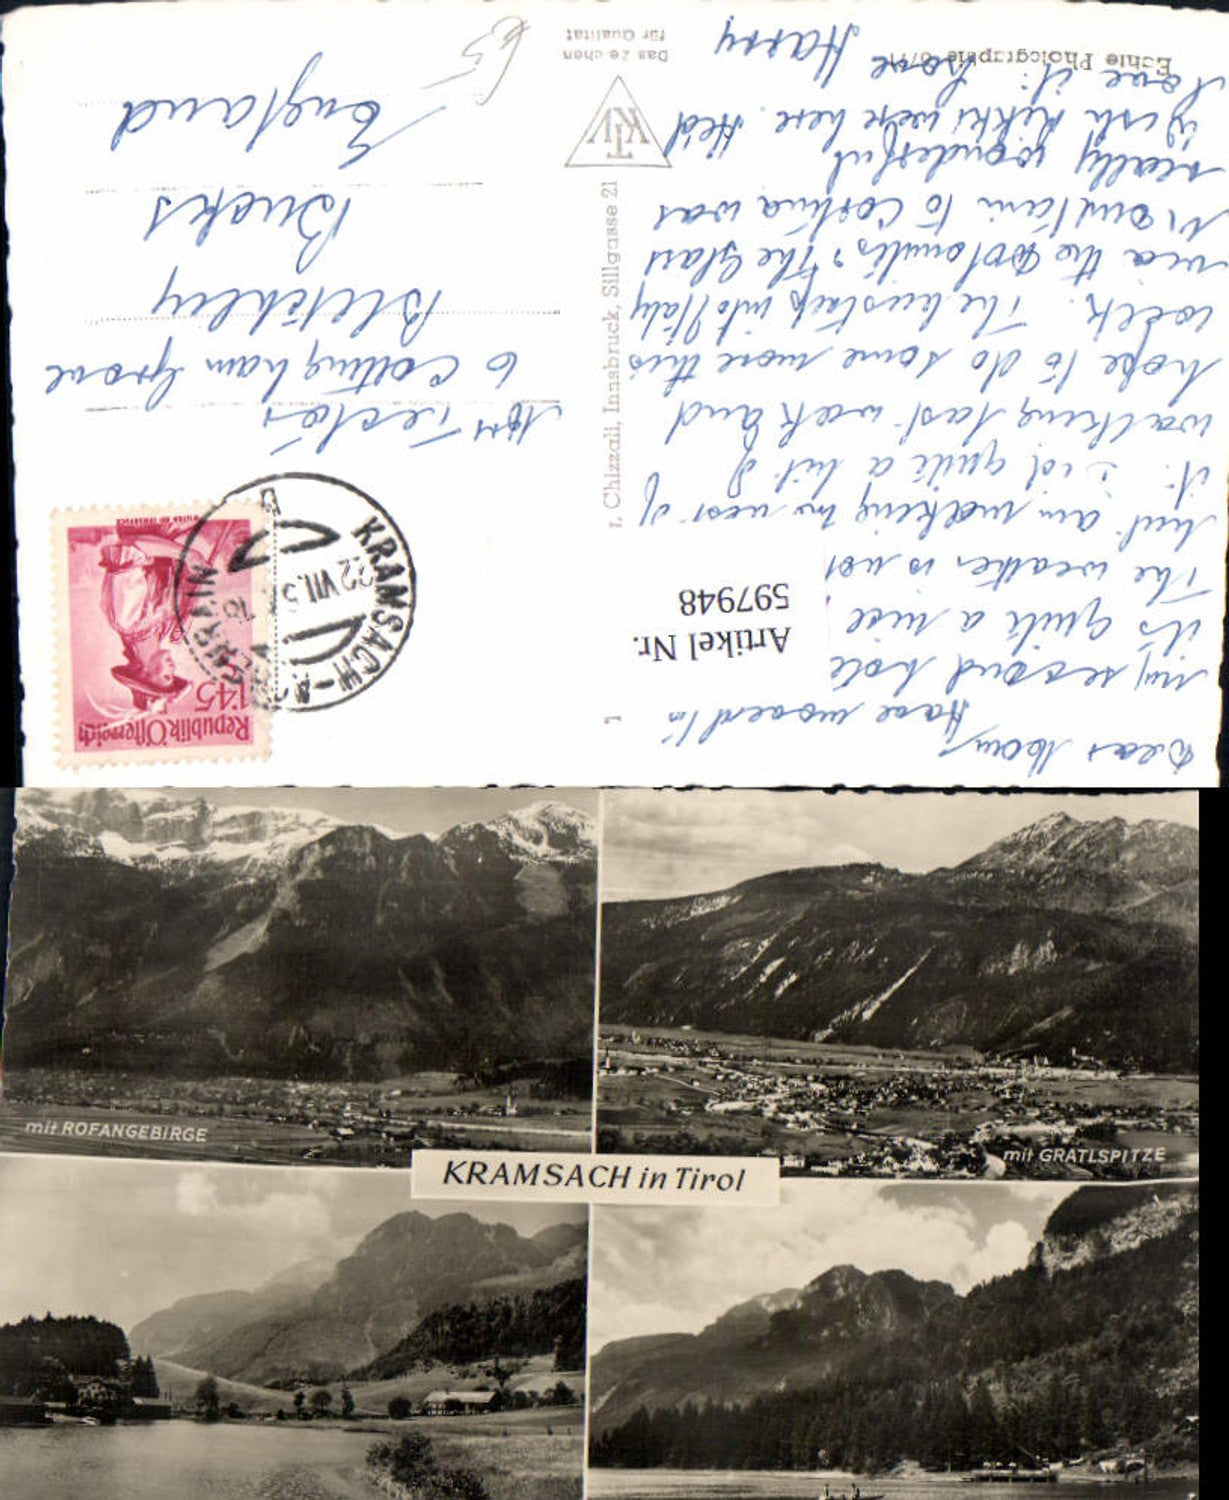 Dear Mom,
Have moved in
my second hote
it's quite a nice
The weather is not
but am making the most of
it. Did quite a bit of
walking last week and
hope to do some more this
week. The bus trip into Italy
via the Dolomites & The Glass
Mountain to Cortina was
really wonderful
wish Nikki were here. He'd
love it. Love Harry
Artikel Nr.
597948
1
r. Chizzali, Innsbruck, Sillgasse 21
KTV
Das Zeichen
für Qualität
Echte Photographie
Republik Österreich
1'45
KRAMSACH-A
22.VII.5
Mrs
6 Cottingham Grove
Bletchley
Bucks
England
65
mit ROFANGEBIRGE
mit GRATLSPITZE
KRAMSACH in Tirol